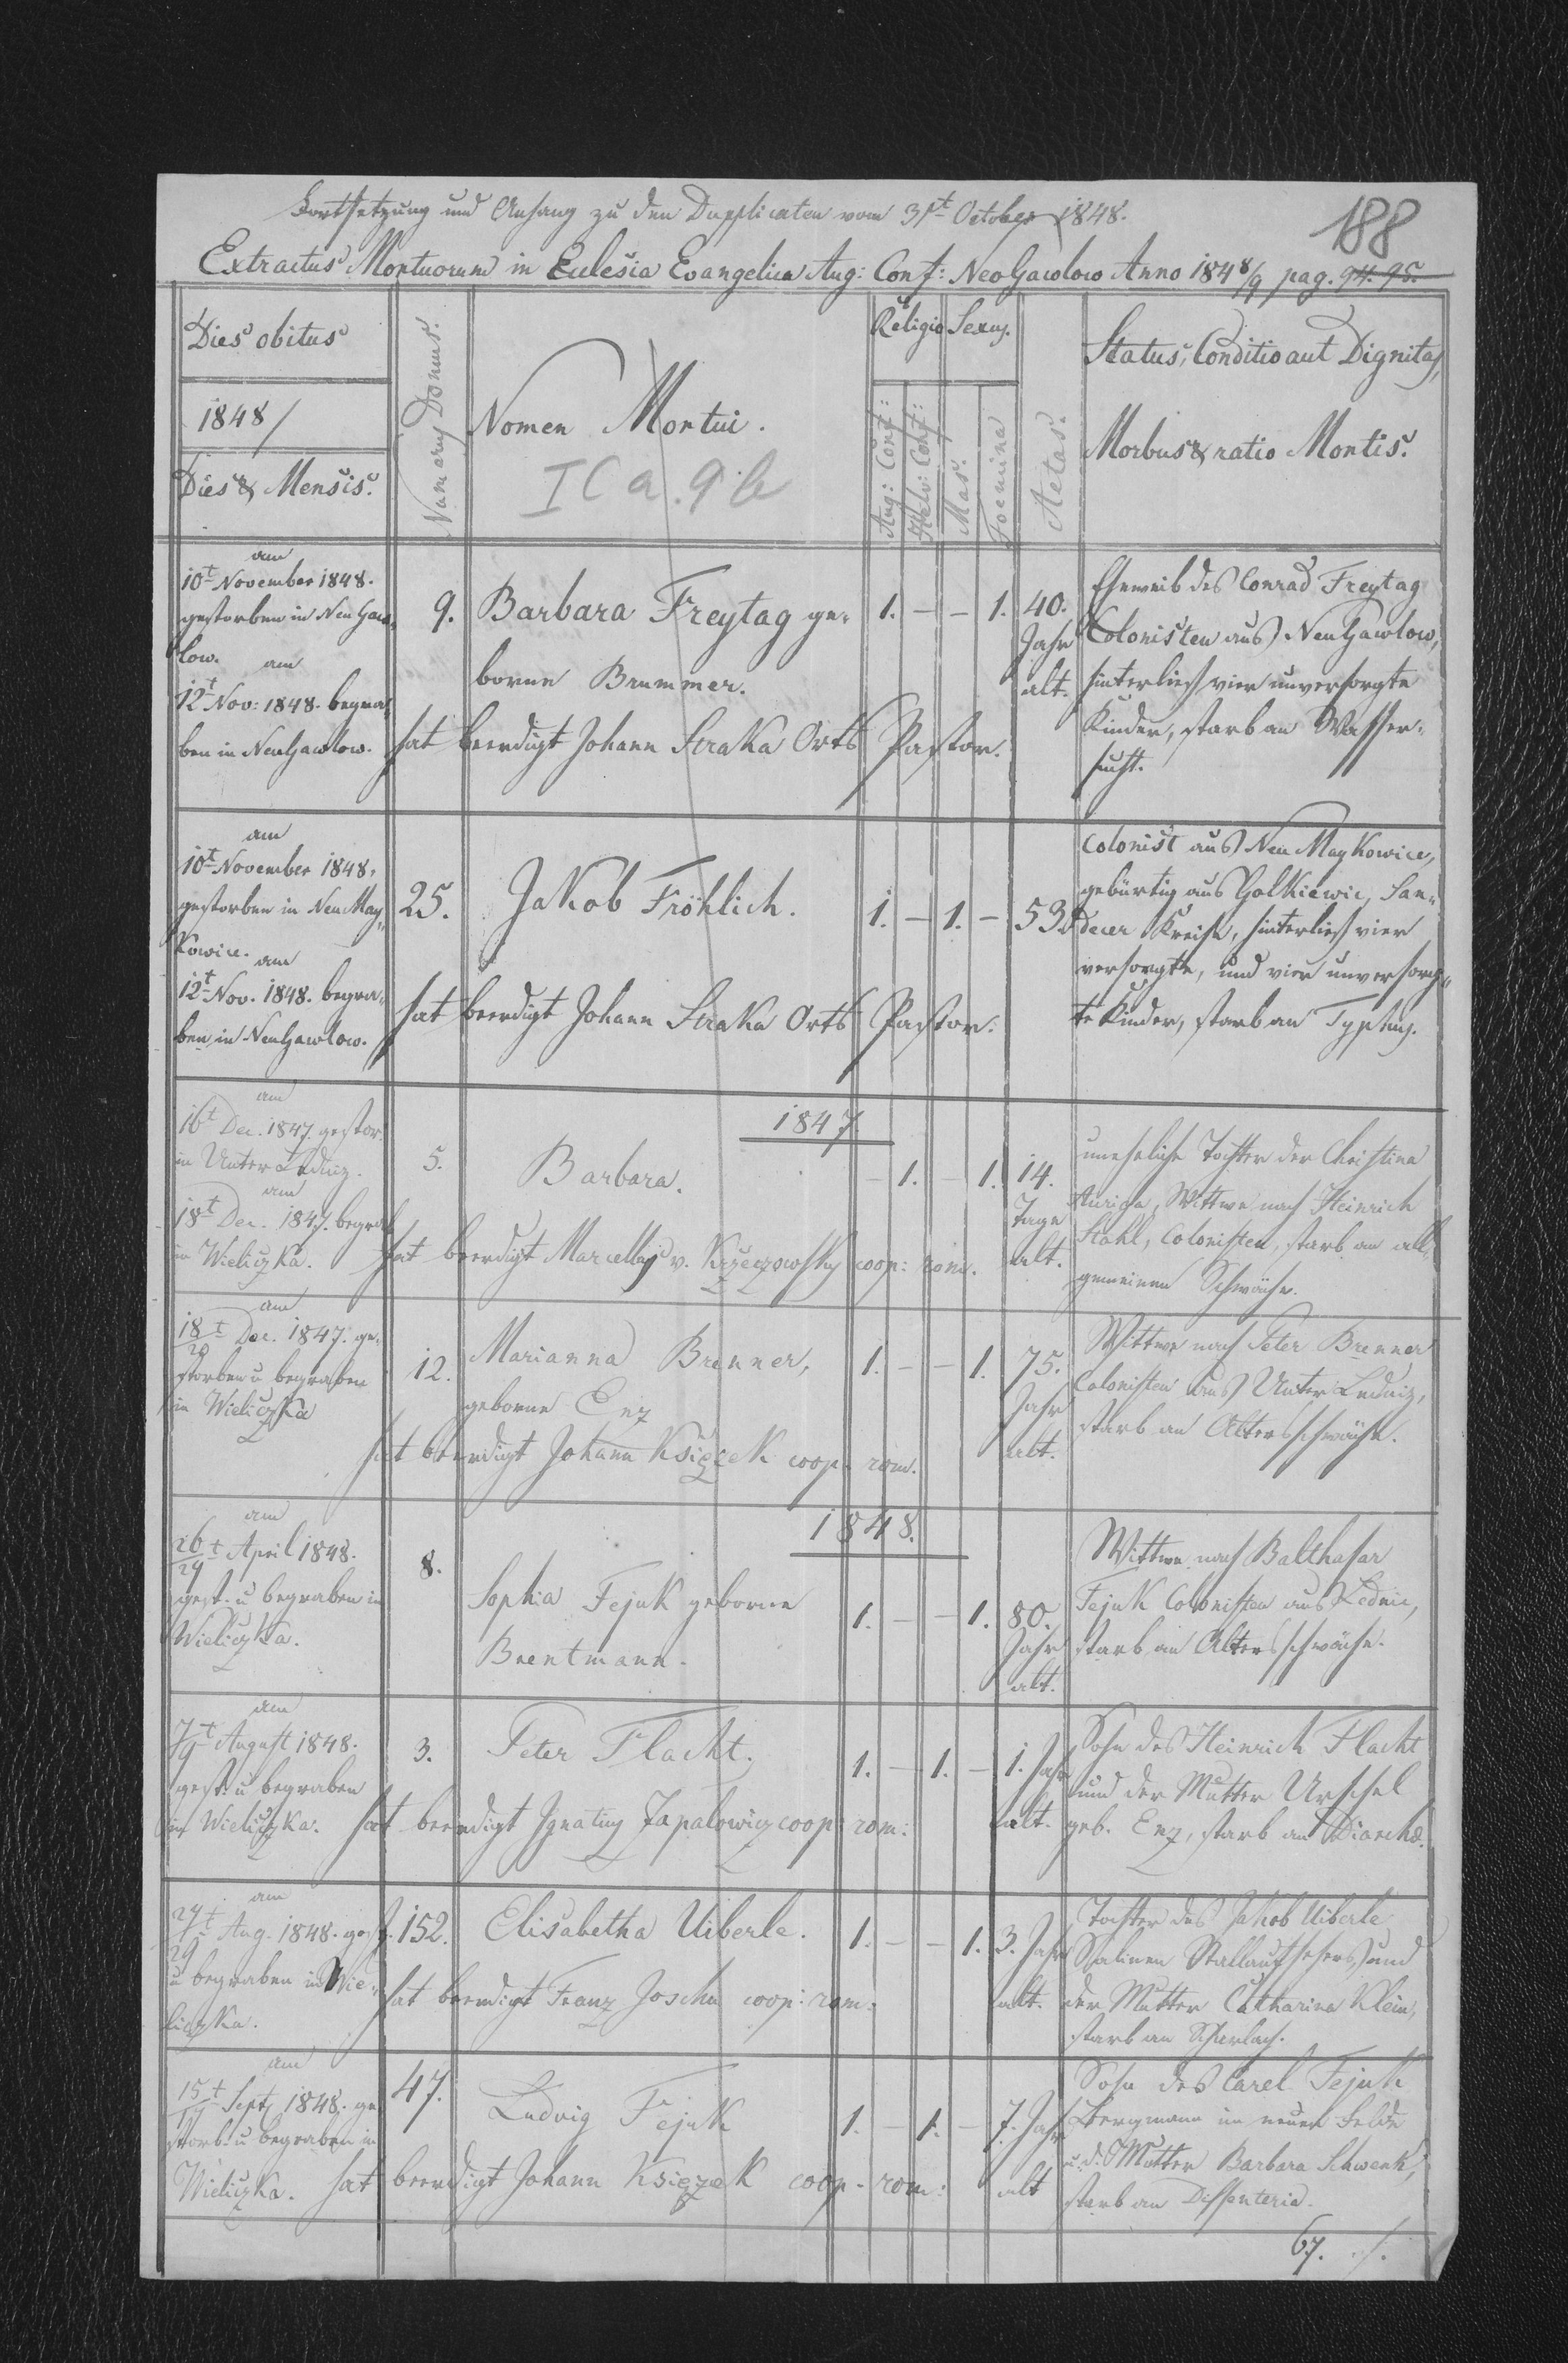 Fortsetzung und Anhang zu den Dupplicaten vom 31t October 1848.
188
Extractus Mortuorum in Eulesia Evangelica Aug: Conf: NeoGawlow Anno 1848/9 pag. 94. 95.
Dies obitus
1848/
Dies & Mensis.
Numerus Domus.
Nomen Mortui.
I C a. 9 b
Religio
Aug: Conf:
Helv: Conf:
Sexus.
Mas.
Foemina
Aetas.
Status, Conditio aut Dignitas,
Morbus & ratio Mortis.
am
10t November 1848.
gestorben in Neu Gaw-
low. am
12t Nov: 1848. begra-
ben in NeuGawlow.
9.
Barbara Freytag ge-
borne Brummer.
hat beerdigt Johann Straka Orts Pastor.
1. – – 1.
40.
Jahr
alt.
Eheweib des Conrad Freytag
Colonisten aus NeuGawlow,
hinterließ vier unversorgte
Kinder, starb an Wasser-
sucht.
am
10t November 1848.
gestorben in Neu May-
kowice. am
12t Nov. 1848. begra-
ben in NeuGawlow.
25.
Jakob Fröhlich.
hat beerdigt Johann Straka Orts Pastor.
1. – 1. –
53.
Colonist aus Neu Maykowice,
gebürtig aus Golkiewic, San-
decer Kreise, hinterließ vier
versorgte, und vier unversorg-
te Kinder, starb an Typhus.
1847
am
16t Dec. 1847. gestor.
in Unter Ledniz.
am
18t Dec. 1847. begra
in Wieliczka.
5.
Barbara.
hat beerdigt Marcellus v. Krzeczowsky coop: rom.
– 1. – 1.
14.
Tage
alt.
uneheliche Tochter der Christina
Auriga, Wittwe nach Heinrich
Stahl, Colonisten, starb an all-
gemeinen Schwäche.
am
18/20t Dec. 1847. ge-
storben u begraben
in Wieliczka
12.
Marianna Brenner,
geborne Enz
hat beerdigt Johann Księżek coop. rom.
1. – – 1.
75.
Jahr
alt.
Wittwe nach Peter Brenner
Colonisten aus Unter Ledniz,
starb an Altersschwäche.
1848.
am
26/29t April 1848.
gest. u begraben in
Wieliczka.
8.
Sophia Fejuk geborne
Brentmann.
1. – – 1.
80.
Jahr
alt.
Wittwe nach Balthasar
Fejuk Colonisten aus Lednic,
starb an Altersschwäche.
am
7/9t August 1848.
gest. u begraben
in Wieliczka.
3.
Peter Flacht.
hat beerdigt Ignatius Zapalowicz coop: rom:
1. – 1. –
1. Jahr
alt.
Sohn des Heinrich Flacht
und der Mutter Urschel
geb. Enz, starb an Diarrhö.
am
27/29t Aug. 1848. gest.
u begraben in Wie-
liczka.
152.
Elisabetha Uiberle.
hat beerdigt Franz Joschu coop: rom:
1. – – 1.
3. Jahr
alt.
Tochter des Jakob Uiberle
Salinen Stallaufsehers und
der Mutter Catharina Klein,
starb an Scharlach.
am
15/17t Sept. 1848. ge
storb. u begraben in
Wieliczka.
47.
Ludvig Fejuk
hat beerdigt Johann Księżek coop. rom:
1. – 1. –
7. Jahr
alt
Sohn des Carel Fejuk
Bergmann im neuen Felde
u. d. Mutter Barbara Schwenk,
starb an Dissenteria.
67. ./.